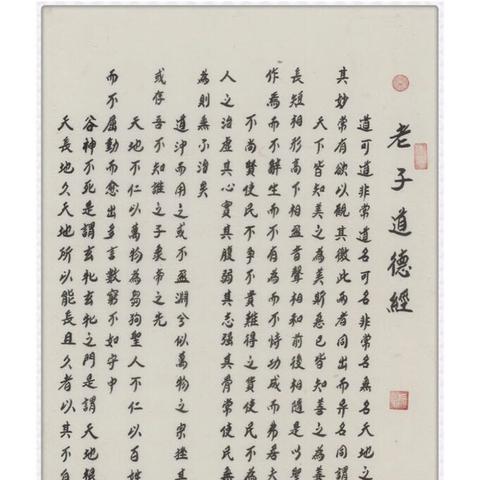 老子道德經
道可道非常道名可名非常名無名天地之
其妙常有欲以觀其徼此兩者同出而異名同謂
天下皆知美之為美斯惡已皆知善之為善
長短相形高下相盈音聲相和前後相隨是以聖
作為而不辭生而不有為而不恃功成而弗居夫
不尚賢使民不爭不貴難得之貨使民不為
人之治虛其心實其腹弱其志強其骨常使民無
為則無不治矣
道沖而用之或不盈淵兮似萬物之宗挫其
或存吾不知誰之子象帝之先
天地不仁以萬物為芻狗聖人不仁以百姓
而不屈動而愈出多言數窮不如守中
谷神不死是謂玄牝玄牝之門是謂天地根
天長地久天地所以能長且久者以其不自